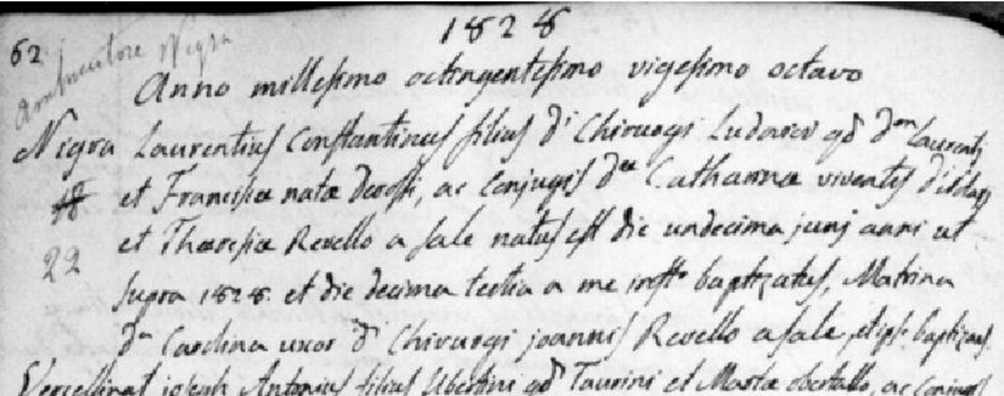 62
1828
Anno millesimo octingentesimo vigesimo octavo
Nigra Laurentius Constantinus filius Di Chirurgi Ludovici qd Dni Laurentij
et Franciscæ natæ Derossi, ac Conjugis Dæ Catharinæ viventis Di
18
et Theresiæ Revello a sale natus est die undecima junj anni ut
22
supra 1828. et die decima tertia a me baptizatus, Matrina
Da Carolina uxor Di Chirurgi joannis Revello a sale
Vercellinat joseph Antonius filius Ubertini qd Taurini et Mariæ obertallo, ac Conjugis